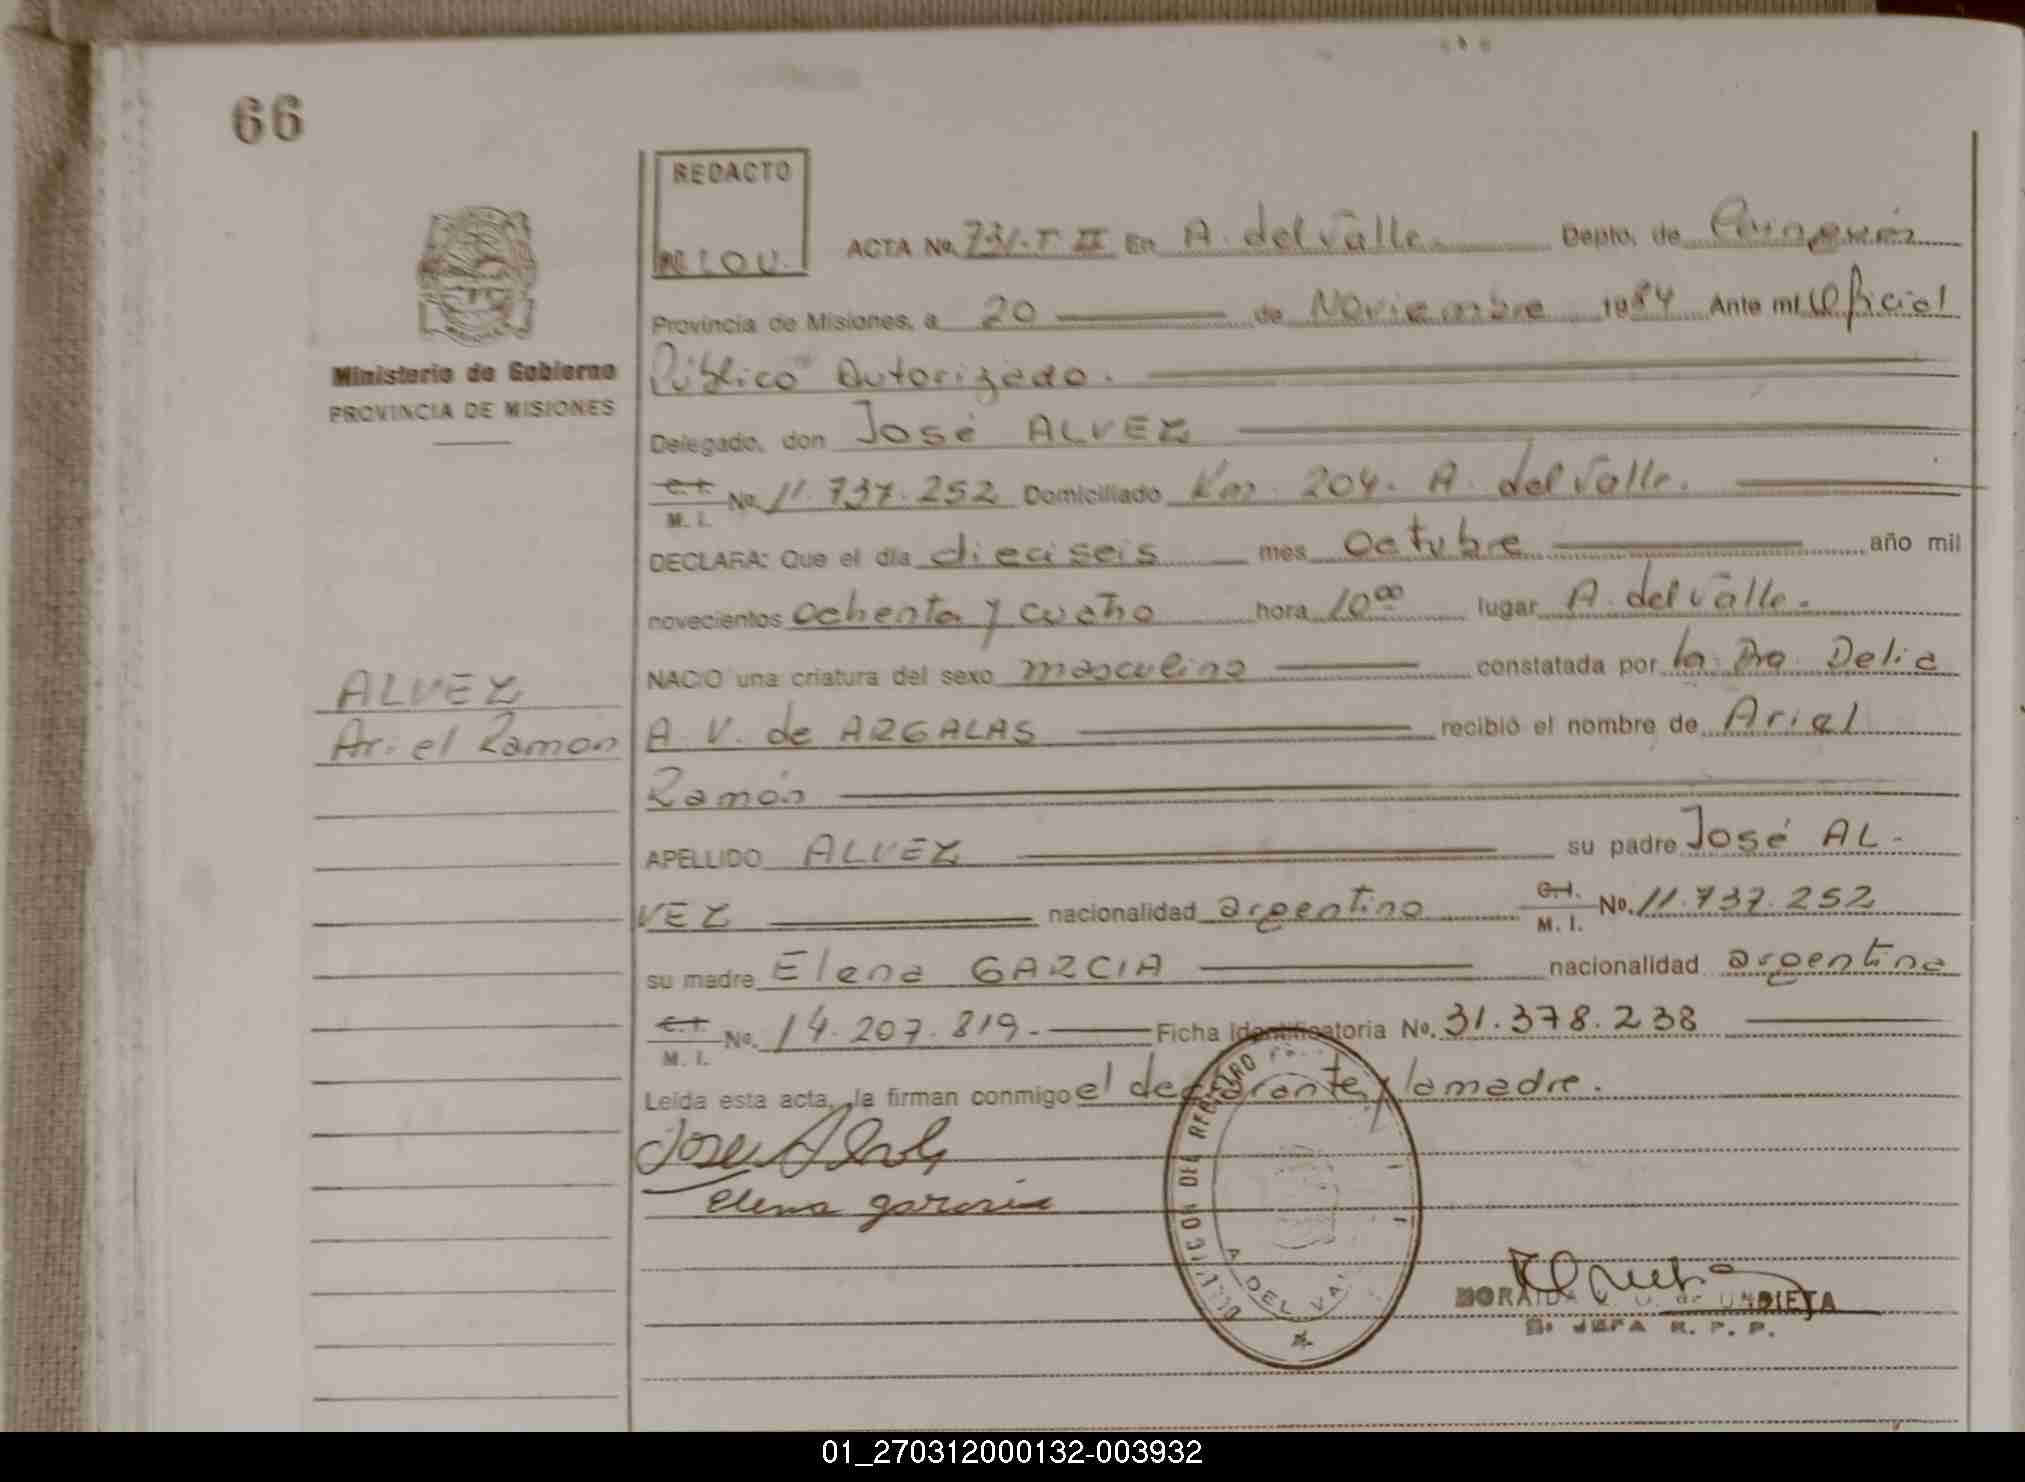 66
REDACTO
M. LOU.
ACTA No. 731-T II En A. del Valle. Depto. de Guaraní
Provincia de Misiones, a 20 de Noviembre 1984 Ante mí Oficial
Público Autorizado.
Ministerio de Gobierno
PROVINCIA DE MISIONES
Delegado, don José ALVEZ
C.I. M. I. No. 11.737.252 Domiciliado Km. 204. A. del Valle.
DECLARA: Que el día dieciseis mes octubre año mil
novecientos ochenta y cuatro hora 10⁰⁰ lugar A. del Valle.
NACIO una criatura del sexo masculino constatada por la Dra. Delia
ALVEZ
Ariel Ramon
A. V. de ARGALAS recibió el nombre de Ariel
Ramón
APELLIDO ALVEZ su padre José AL-
VEZ nacionalidad argentino C.I. M. I. No. 11.737.252
su madre Elena GARCIA nacionalidad argentina
C.I. M. I. No. 14.207.819.- Ficha Identificatoria No. 31.378.238
Leída esta acta, la firman conmigo el declarante y la madre.
Jose Alvez
elena garcia
DEL REGISTRO
A. DEL VA
DE URDIETA
JEFA R. P. P.
01_270312000132-003932